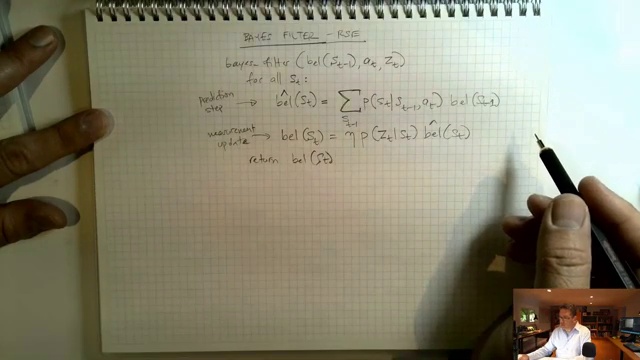 BAYES FILTER - RSE
bayes-filter (bel(s_{t-1}), a_t, z_t)
for all s_t:
prediction step → b̂el(s_t) = ∑_{s_{t-1}} p(s_t | s_{t-1}, a_t) bel(s_{t-1})
measurement update → bel(s_t) = η p(z_t | s_t) b̂el(s_t)
return bel(s_t)